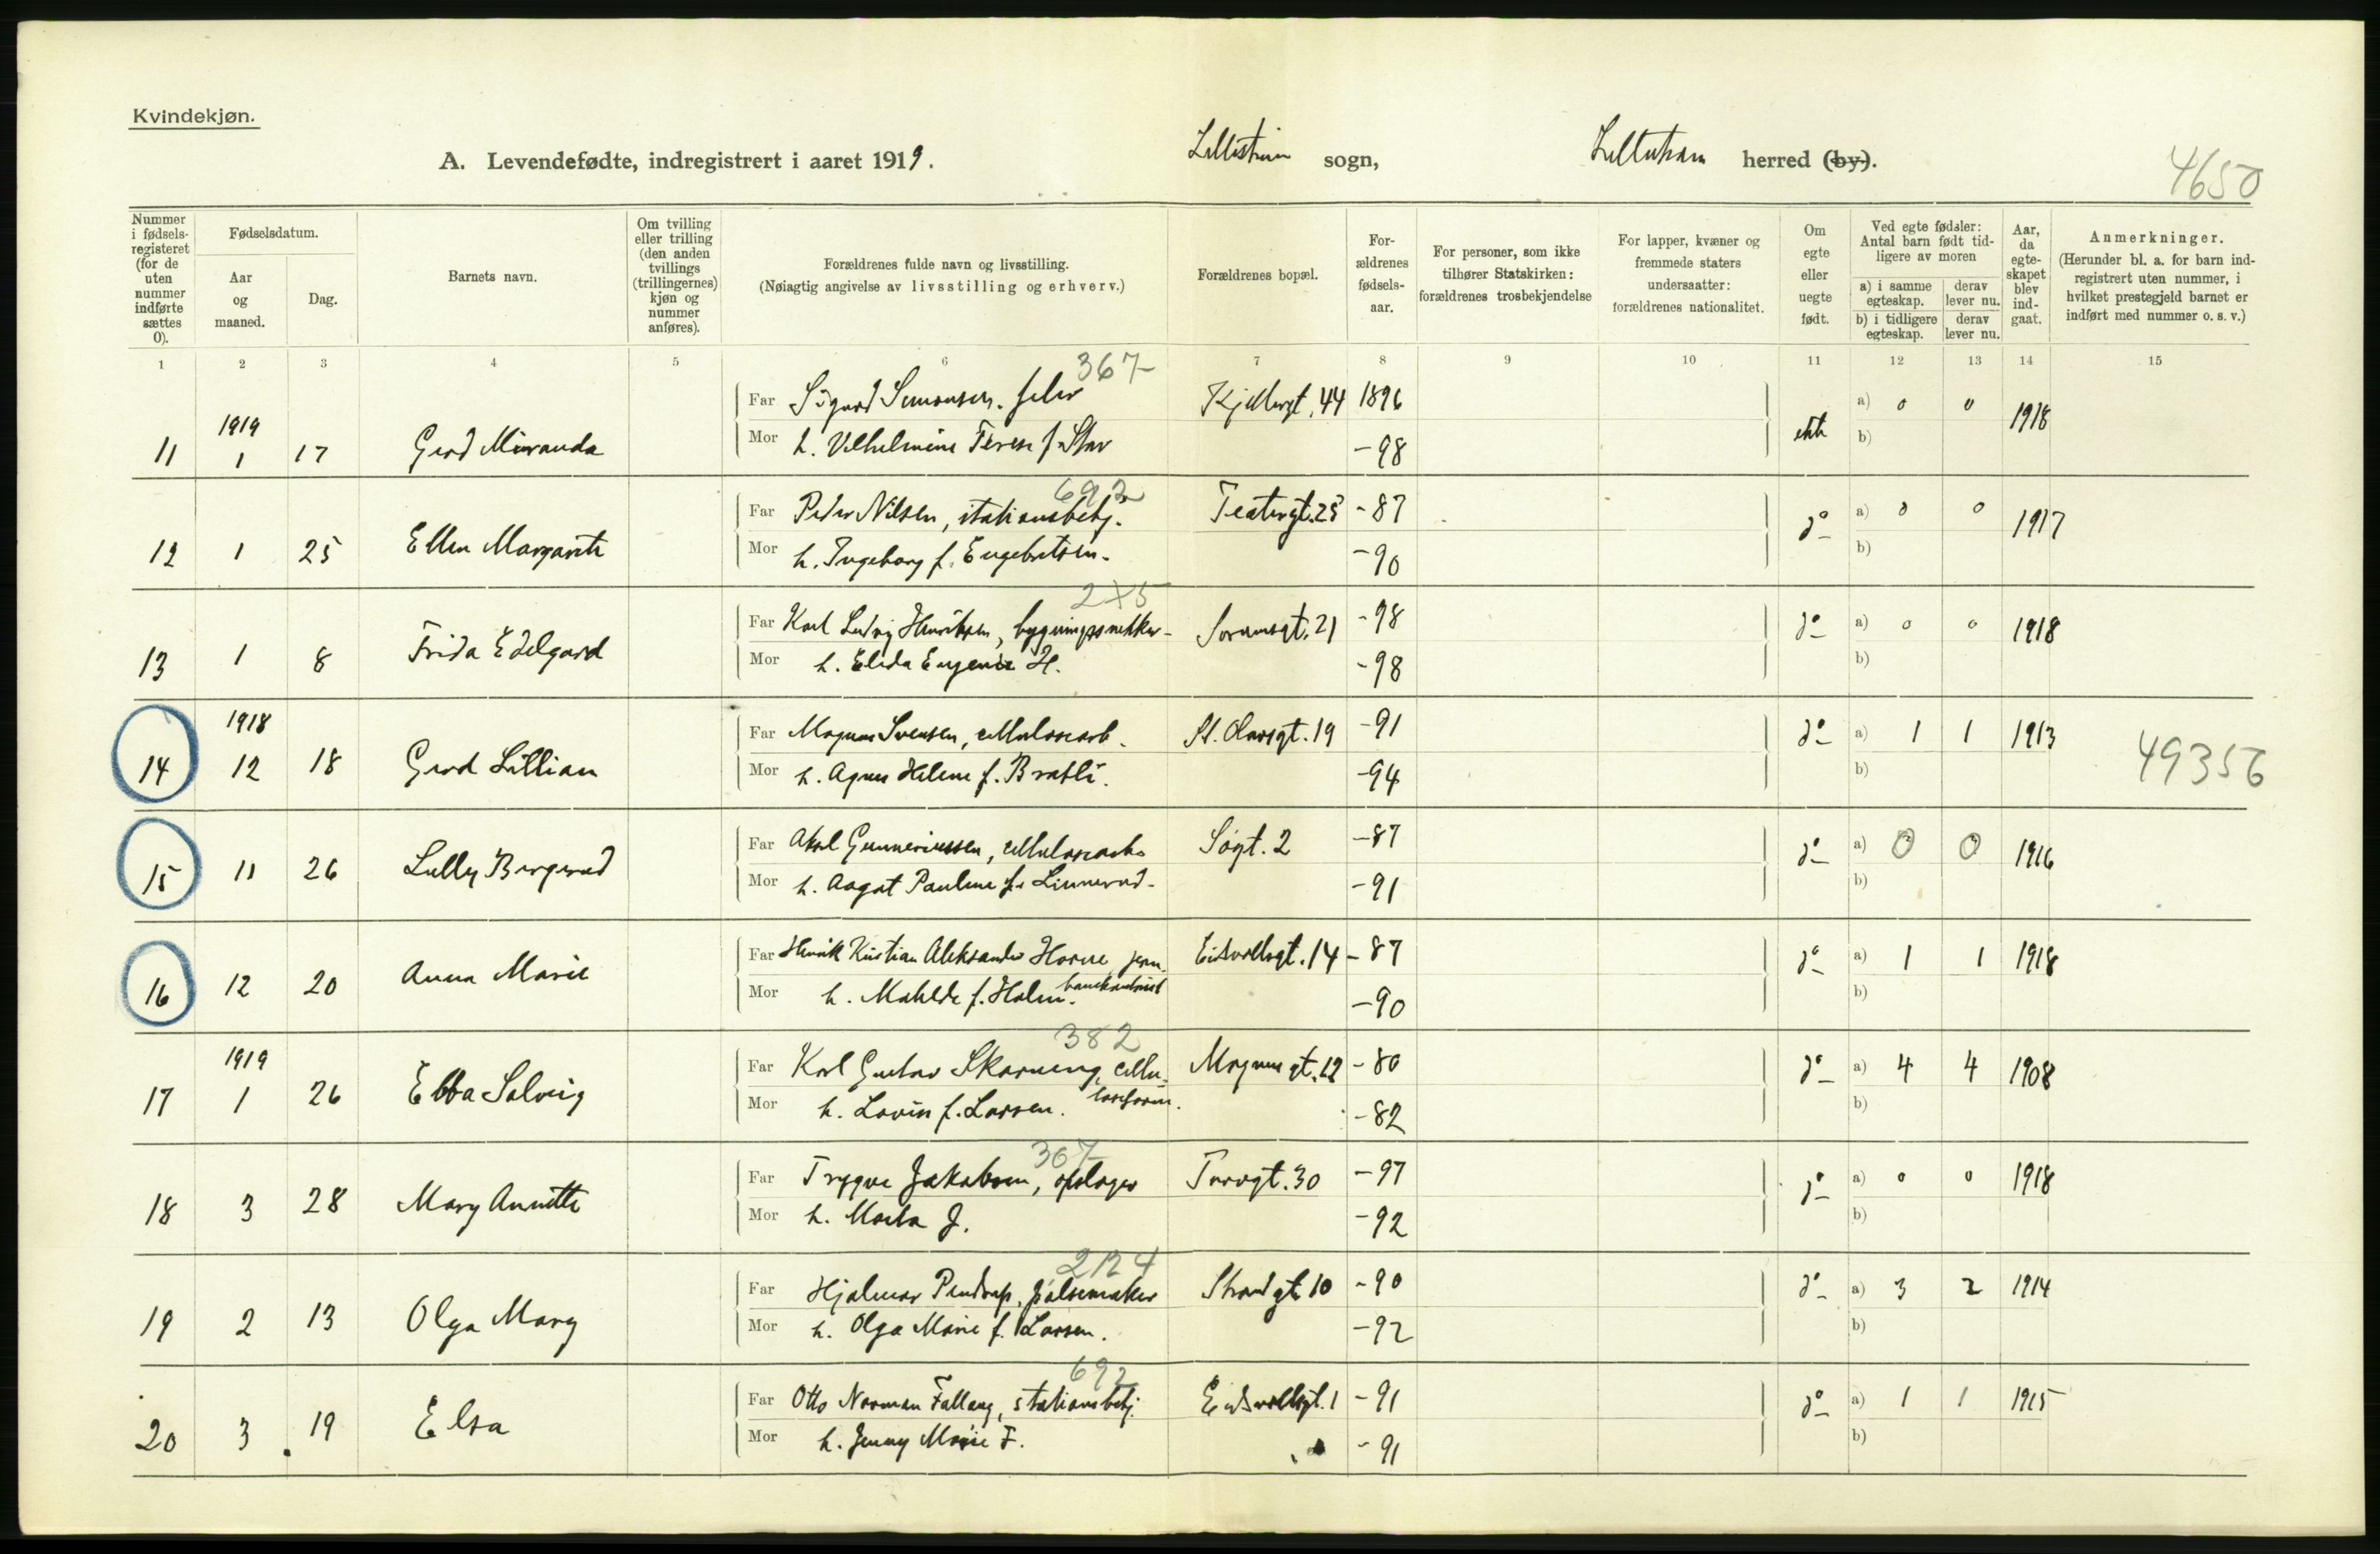 Kvindekjøn.
A. Levendefødte, indregistrert i aaret 1919. Lillestrøm sogn, herred (by).
4650
Nummer i fødsels-registeret (for de uten nummer indførte sættes 0).
Fødselsdatum.
Aar og maaned.
Dag.
Barnets navn.
Om tvilling eller trilling (den anden tvillings (trillingernes) kjøn og nummer anføres).
Forældrenes fulde navn og livsstilling.
(Nøiagtig angivelse av livsstilling og erhverv.)
Forældrenes bopæl.
For-ældrenes fødsels-aar.
For personer, som ikke tilhører Statskirken: forældrenes trosbekjendelse
For lapper, kvæner og fremmede staters undersaatter: forældrenes nationalitet.
Om egte eller uegte født.
Ved egte fødsler: Antal barn født tid-ligere av moren
a) i samme egteskap. derav lever nu.
b) i tidligere egteskap. derav lever nu.
Aar, da egte-skapet blev ind-gaat.
Anmerkninger.
(Herunder bl. a. for barn ind-registrert uten nummer, i hvilket prestegjeld barnet er indført med nummer o. s. v.)
1 2 3 4 5 6 7 8 9 10 11 12 13 14 15
367
Far Sigurd Simonsen. Kjellergt. 44 1896 a) 0 0 1918
11 1919 1 17 Gerd Miranda Mor h. Vilhelmine Terese f. -98 ekte b)
692
Far Peder Nilsen, stationsbetj. Teatergt. 25 -87 a) 0 0 1917
12 1 25 Ellen Margarete Mor h. Ingeborg f. Engebretsen. -90 do b)
2X5
Far Karl Ludvig Henriksen, bygningssnekker Sørumsgt. 21 -98 do a) 0 0 1918
13 1 8 Frida Edelgard Mor h. Elida Eugenie H. -98 b)
Far Magnus Svensen, cellulosearb. St. Olavsgt. 19 -91 do a) 1 1 1913
14 1918 12 18 Gerd Lillian Mor h. Agnes Helene f. Bratli. -94 b) 49356
Far Aksel Gunneriussen, cellulosearb. Søgt. 2 -87 do a) 0 0 1916
15 11 26 Lully Bergerud Mor h. Aagot Pauline f. Linnerud. -91 b)
Far Henrik Kristian Aleksander Horne, jern- Eidsvollsgt. 14 -87 do a) 1 1 1918
16 12 20 Anna Marie Mor h. f. Holm. -90 b)
382
Far Karl Gustav Skarning, cellu- Magnusgt. 12 -80 do a) 4 4 1908
17 1919 1 26 Ebba Solveig Mor h. Lovise f. Larsen. loseform. -82 b)
367
Far Trygve Jakobsen, opslager Torvgt. 30 -97 a) 0 0 1918
18 3 28 Mary Annette Mor h. Marta J. -92 do b)
2124
Far Hjalmar Pindrup, pølsemaker Strandgt 10 -90 do a) 3 2 1914
19 2 13 Olga Mary Mor h. Olga Marie f. Larsen. -92 b)
692
Far Otto Norman Fallang, stationsbetj. Eidsvollsgt. 1 -91 do a) 1 1 1915
20 3 19 Elsa Mor h. Jenny Marie F. -91 b)